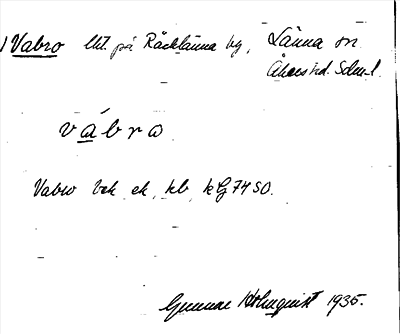 Vabro Ut. på Räcklänna bg, Länna sn.
Åkers hd. Södm. l.
vábro
Vabro bek ek, kb, kG 74 SO.
Gunnar Holmquist 1935.